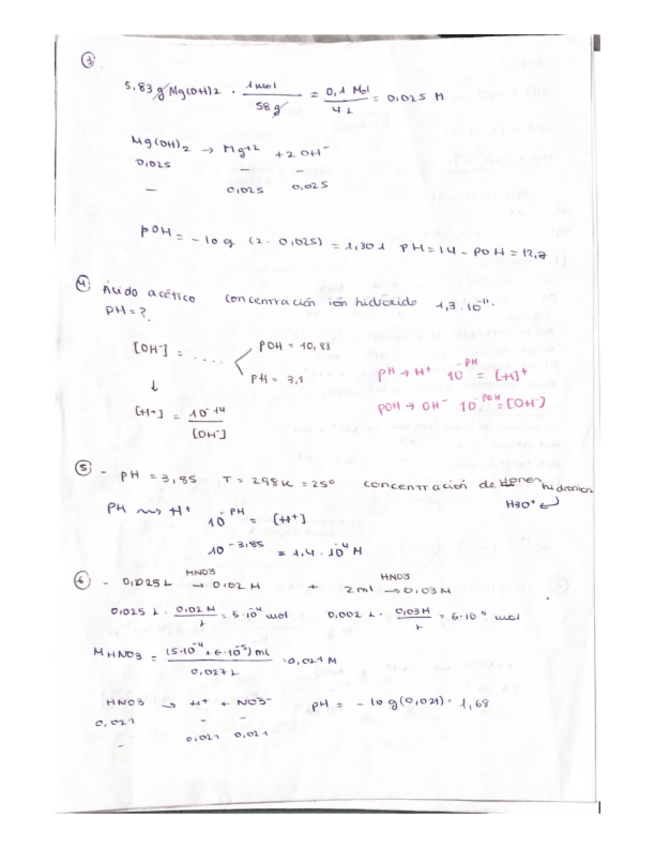 ③
5.83 g Mg(OH)2 · 1 mol / 58 g = 0,1 Mol / 4 L = 0,025 M
Mg(OH)2 → Mg+2 + 2 OH-
0,025 - -
- 0,025 0,025
pOH = - log (2 · 0,025) = 1,301 PH = 14 - POH = 12,7
④ Ácido acético concentración ión hidróxido 1,3 · 10^-11.
PH = ?
[OH-] = .... POH = 10,88
PH = 3,1
↓
[H+] = 10^-14 / [OH-]
PH → H+ 10^-PH = [H]+
POH → OH- 10^-POH = [OH-]
⑤ - PH = 3,85 T = 298K = 25° concentración de iones hidronios
H3O+
PH ⇝ H+ 10^-PH = [H+]
10^-3,85 = 1,4 · 10^-4 M
⑥ - 0,025 L HNO3 → 0,02 M + 2 ml HNO3 → 0,03 M
0,025 L · 0,02 M / L = 5·10^-4 mol 0,002 L · 0,03 M / L = 6·10^-5 mol
M HNO3 = (5·10^-4 + 6·10^-5) ml / 0,027 L = 0,021 M
HNO3 → H+ + NO3- pH = - log (0,021) = 1,68
0,021 - -
- 0,021 0,021